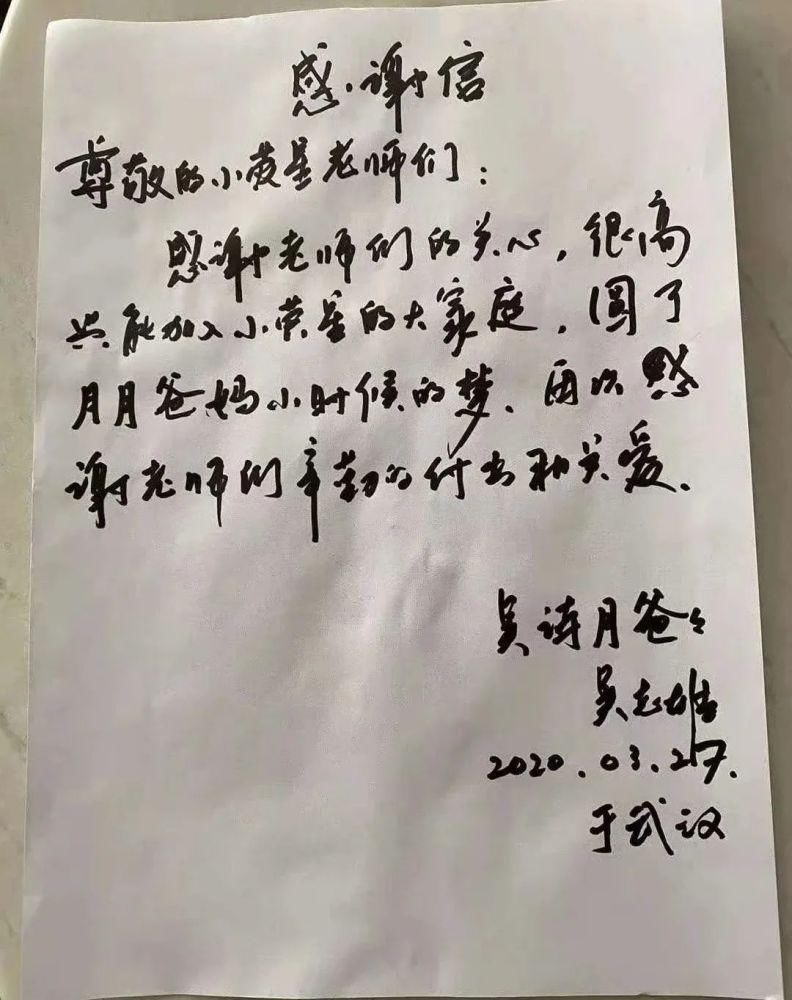 感谢信
尊敬的小荧星老师们：
感谢老师们的关心，很高
兴能加入小荧星的大家庭，圆了
月月爸妈小时候的梦、再次感
谢老师们辛勤的付出和关爱.
吴诗月爸々
吴志雄
2020.03.27.
于武汉